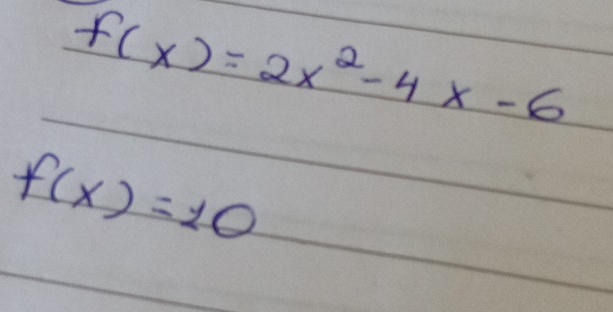 f(x)=2x²-4x-6
f(x)=10